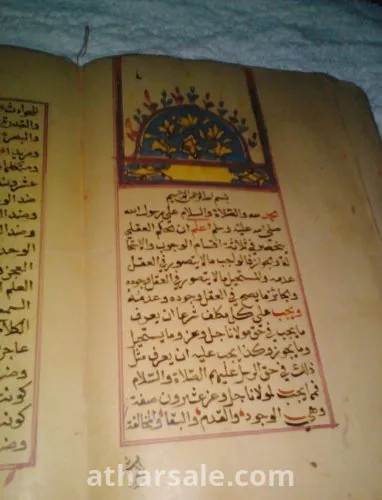 بسم الله الرحمن الرحيم
الحمد لله والصلاة والسلام على رسول الله
صلى الله عليه وسلم اعلم ان الحكم العقلي
ينحصر في ثلاثة اقسام الوجوب والاستحا
لة والجواز فالواجب ما لا يتصور في العقل
عدمه والمستحيل ما لا يتصور في العقل وجوده
والجائز ما يصح في العقل وجوده وعدمه
ويجب على كل مكلف شرعا ان يعرف
ما يجب في حق مولانا جل وعز وما يستحيل
وما يجوز وكذا يجب عليه ان يعرف مثل
ذلك في حق الرسل عليهم الصلاة والسلام
فمما يجب لمولانا جل وعز عشرون صفة
وهي الوجود والقدم والبقاء والمخالفة
للحوادث
والقدرة
والبصر
وضد
الوحد
وضد
العجز
العلم
السمع
الكلام
عاجز
وضد
كونه
كونه
وضد
atharsale.com